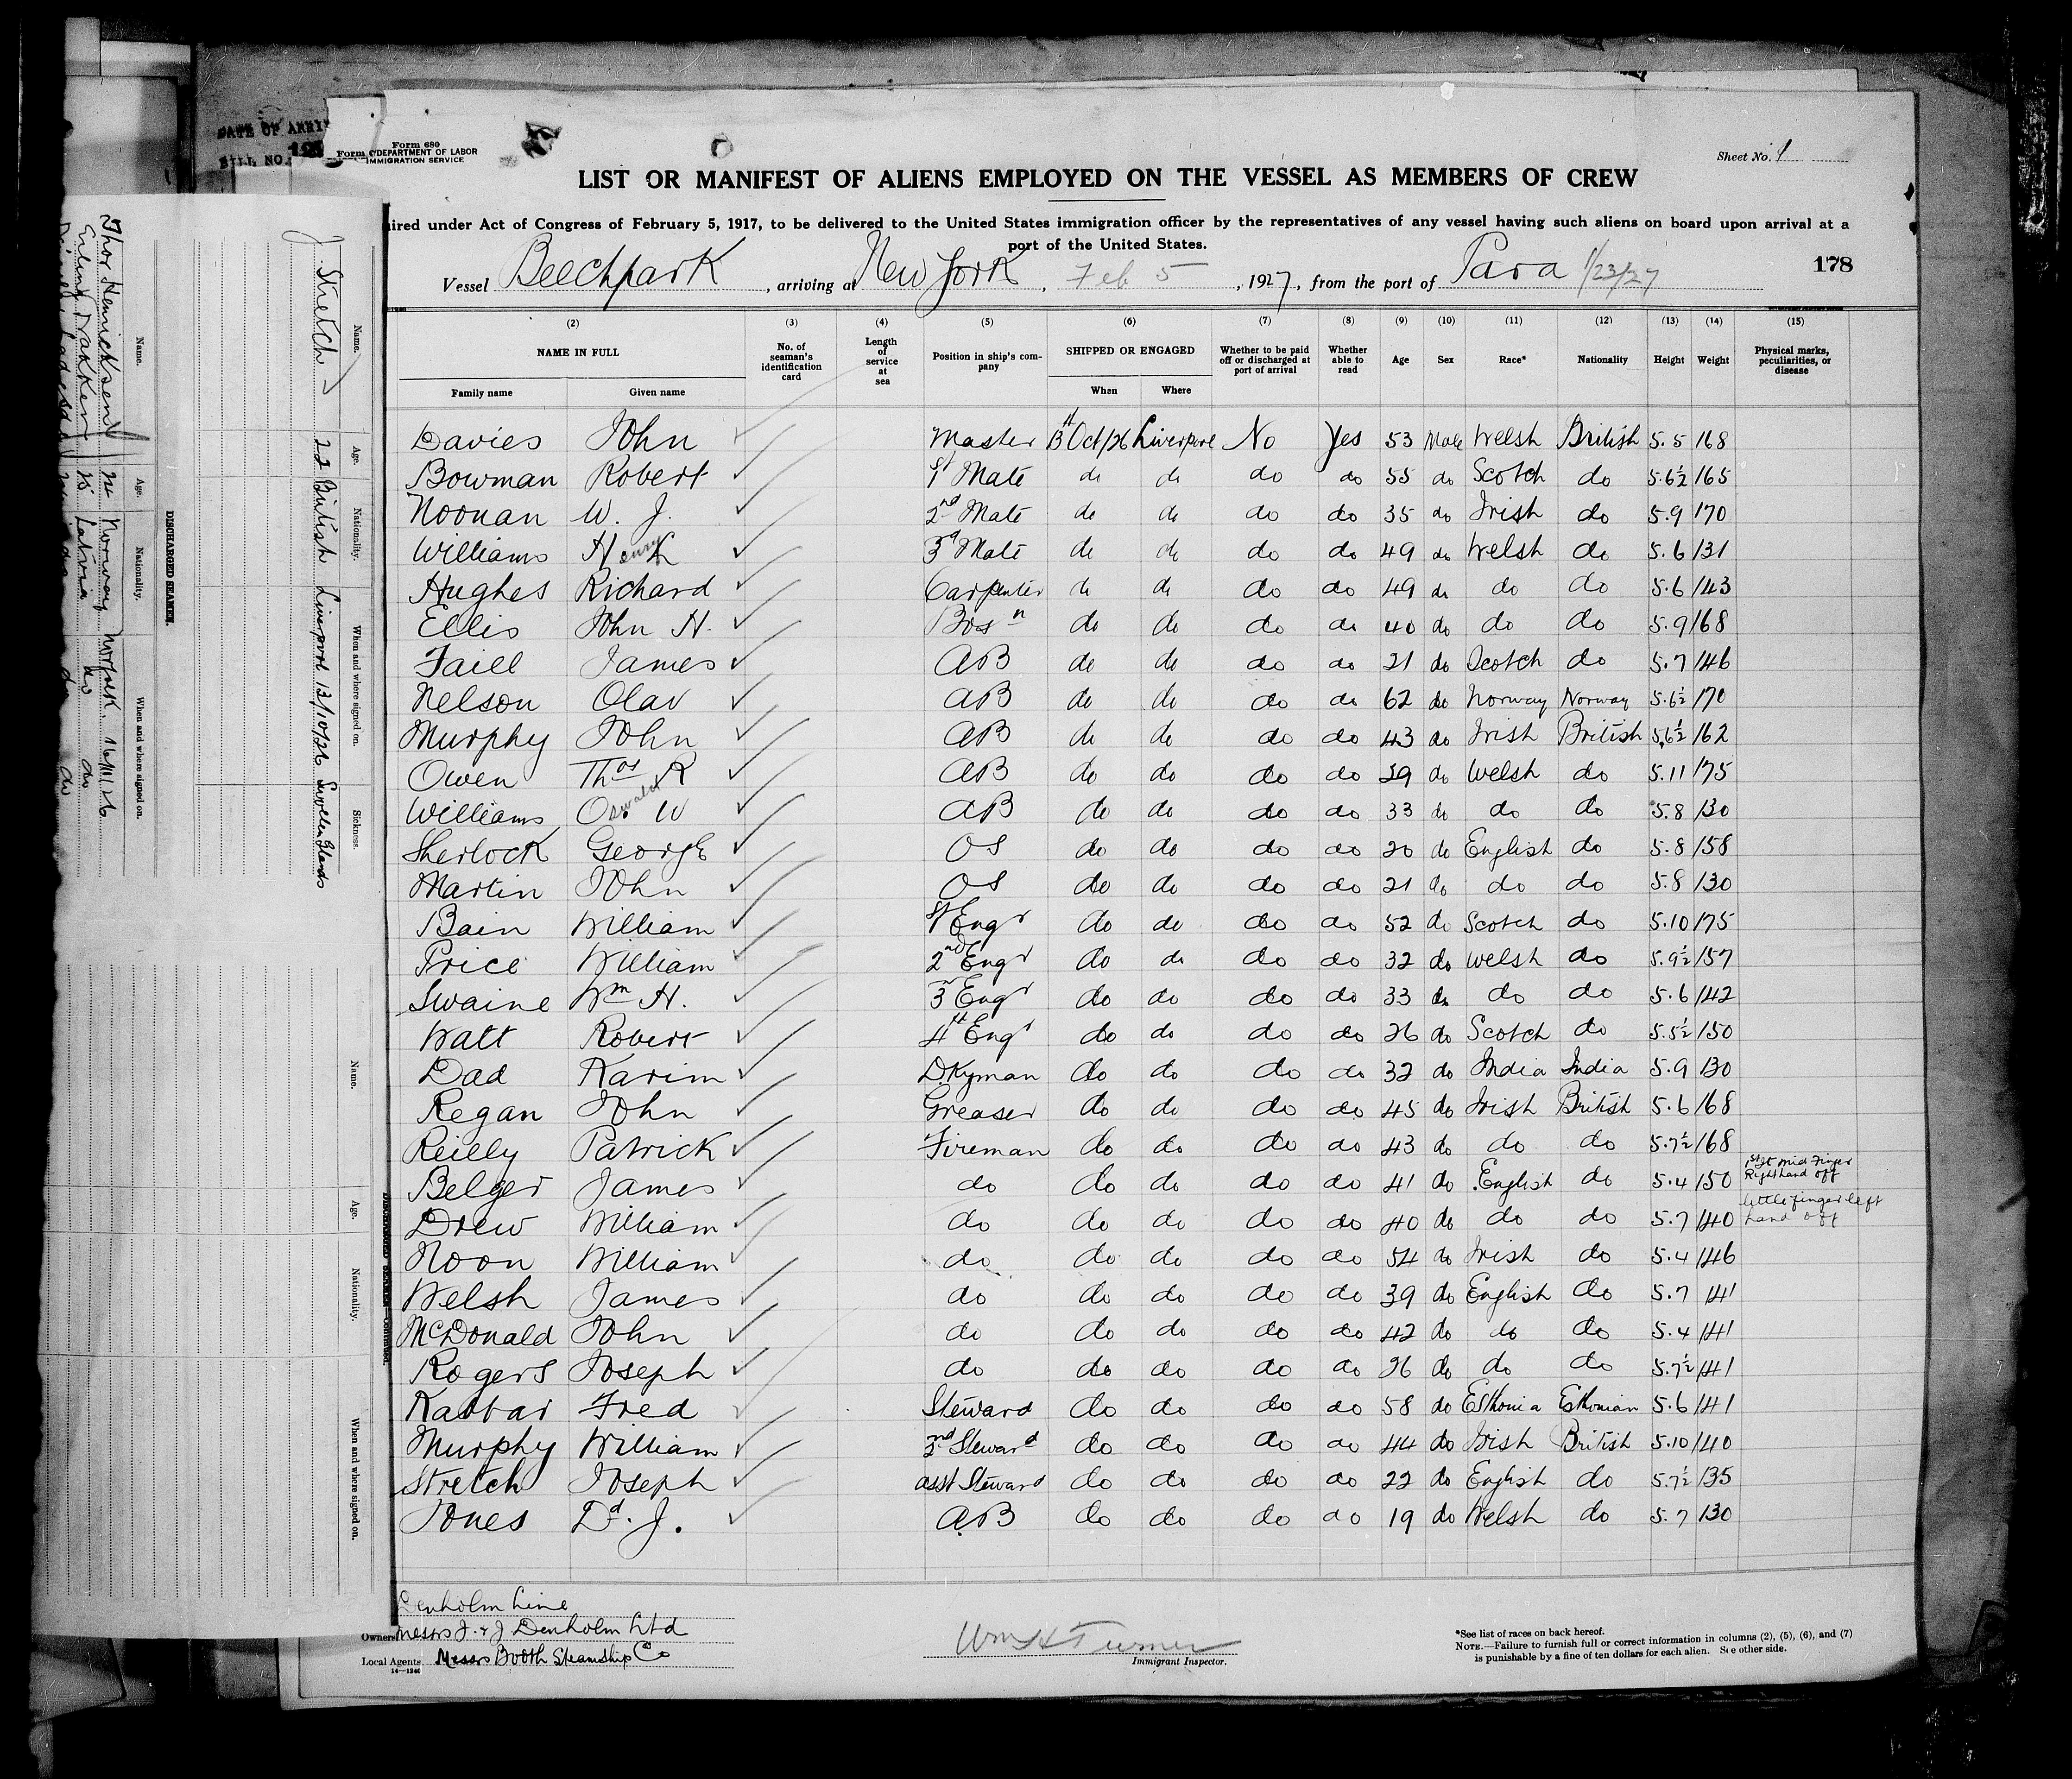 Form 680
DEPARTMENT OF LABOR
IMMIGRATION SERVICE
Sheet No. 1
LIST OR MANIFEST OF ALIENS EMPLOYED ON THE VESSEL AS MEMBERS OF CREW
ired under Act of Congress of February 5, 1917, to be delivered to the United States immigration officer by the representatives of any vessel having such aliens on board upon arrival at a
port of the United States.
Vessel Beechpark, arriving at New York, Feb 5, 1927, from the port of Para 1/23/27
178
(2) (3) (4) (5) (6) (7) (8) (9) (10) (11) (12) (13) (14) (15)
NAME IN FULL No. of seaman's identification card Length of service at sea Position in ship's company SHIPPED OR ENGAGED Whether to be paid off or discharged at port of arrival Whether able to read Age Sex Race* Nationality Height Weight Physical marks, peculiarities, or disease
Family name Given name When Where
Davies John Master 13 Oct/26 Liverpool No Yes 53 Male Welsh British 5.5 168
Bowman Robert 1st Mate do do do do 55 do Scotch do 5.6½ 165
Noonan W. J. 2nd Mate do do do do 35 do Irish do 5.9 170
Williams Henry 3d Mate do do do do 49 do Welsh do 5.6 131
Hughes Richard Carpenter do do do do 49 do do do 5.6 143
Ellis John H. Bosn do do do do 40 do do do 5.9 168
Faill James AB do do do do 21 do Scotch do 5.7 146
Nelson Olav AB do do do do 62 do Norway Norway 5.6½ 170
Murphy John AB do do do do 43 do Irish British 5.6½ 162
Owen Thos R AB do do do do 29 do Welsh do 5.11 175
Williams Oswald W AB do do do do 33 do do do 5.8 130
Sherlock George OS do do do do 20 do English do 5.8 158
Martin John OS do do do do 21 do do do 5.8 130
Bain William 1st Engr do do do do 52 do Scotch do 5.10 175
Price William 2nd Engr do do do do 32 do Welsh do 5.9½ 157
Swaine Wm H. 3r Engr do do do do 33 do do do 5.6 142
Watt Robert 4th Engr do do do do 26 do Scotch do 5.5½ 150
Dad Karim D.Kyman do do do do 32 do India India 5.9 130
Regan John Greaser do do do do 45 do Irish British 5.6 168
Reilly Patrick Fireman do do do do 43 do do do 5.7½ 168
Belger James do do do do do 41 do English do 5.4 150 1st jt mid Finger Right hand off
Drew William do do do do do 40 do do do 5.7 140 little finger left hand off
Noon William do do do do do 54 do Irish do 5.4 146
Welsh James do do do do do 39 do English do 5.7 141
McDonald John do do do do do 42 do do do 5.4 141
Rogers Joseph do do do do do 26 do do do 5.7½ 141
Fred Steward do do do do 58 do Esthonia Esthonian 5.6 141
Murphy William 2nd Steward do do do do 44 do Irish British 5.10 140
Stretch Joseph asst Steward do do do do 22 do English do 5.7½ 135
Jones Dd. J. AB do do do do 19 do Welsh do 5.7 130
Denholm Line
Owners Messrs J. & J Denholm Ltd
Local Agents Messrs Booth Steamship Co
14—1240
Wm H Turner
Immigrant Inspector.
*See list of races on back hereof.
NOTE.—Failure to furnish full or correct information in columns (2), (5), (6), and (7)
is punishable by a fine of ten dollars for each alien. See other side.
DATE OF ARRI
BILL NO.
Name. Age. Nationality. When and where signed on. Sickness.
J. Stretch 22 British Liverpool 13/10/26 Swollen Glands
DISCHARGED SEAMEN.
Name. Age. Nationality. When and where signed on.
Thor Henricksen Norway Norfolk. 16/11/26
Latvia do do
Name. Age. Nationality. When and where signed on.